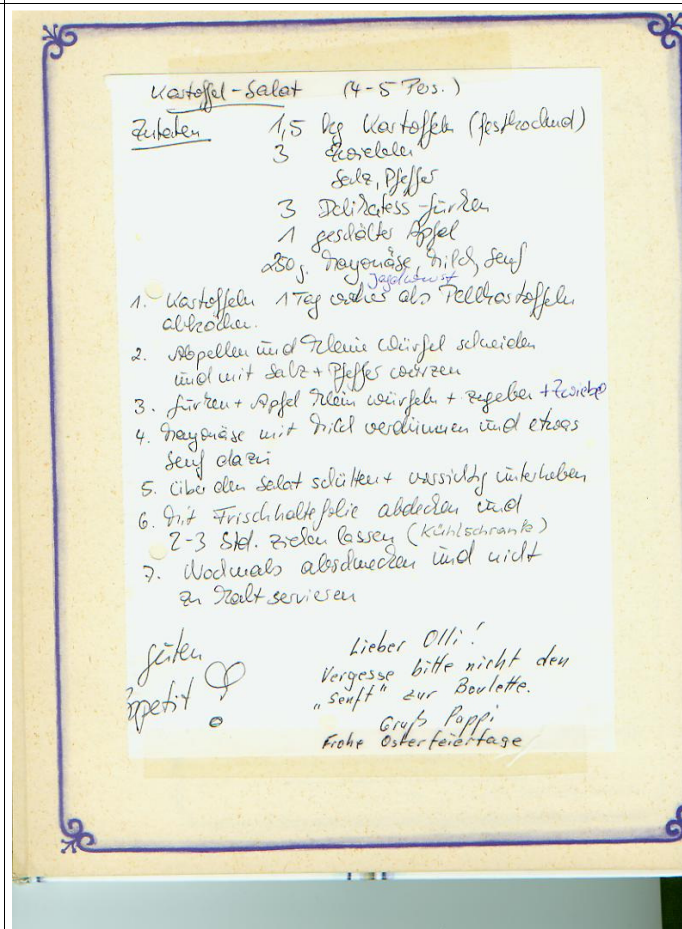 Kartoffel-Salat (4-5 Pers.)
Zutaten 1,5 kg Kartoffeln (festkochend)
3 Zwiebeln
Salz, Pfeffer
3 Delikatess-Gurken
1 geschälter Apfel
250 g. Mayonäse, Milch, Senf
Jagdwurst
1. Kartoffeln 1 Tag vorher als Pellkartoffeln
abkochen.
2. Abpellen und kleine Würfel schneiden
und mit Salz + Pfeffer würzen
3. Gurken + Apfel klein würfeln + zugeben + Zwiebel
4. Mayonäse mit Milch verdünnen und etwas
Senf dazu
5. über den Salat schütten + vorsichtig unterheben
6. Mit Frischhaltefolie abdecken und
2-3 Std. ziehen lassen (Kühlschrank)
7. Nochmals abschmecken und nicht
zu kalt servieren
Guten
Appetit !
Lieber Olli!
Vergesse bitte nicht den
„Senft“ zur Boulette.
Gruß Poppi
Frohe Osterfeiertage